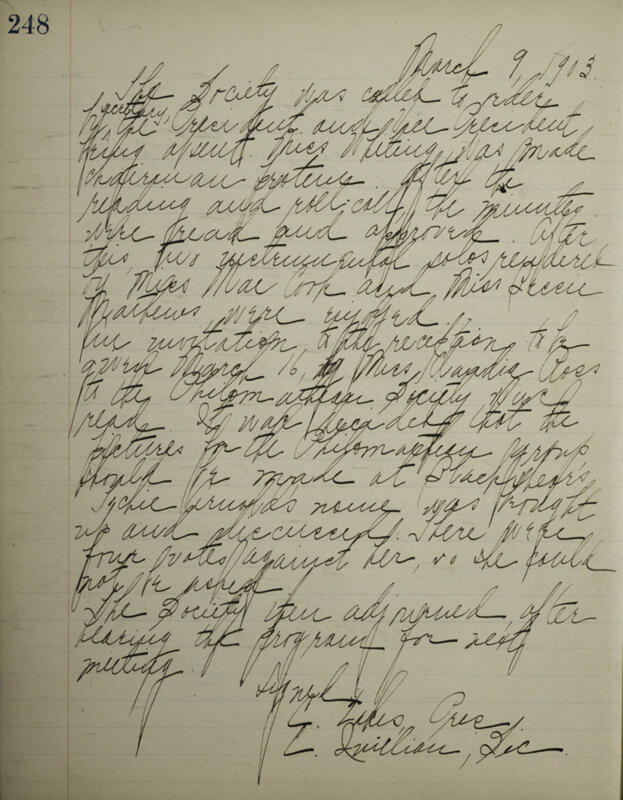 248
March 9, 1903.
The Society was called to order
by the Secretary, President and Vice President
being absent. Miss Whiting was made
chairman protem. After the
reading and roll-call the minutes
were read and approved. After
this two instrumental solos rendered
by Miss Mae Cook and Miss
Mathews were enjoyed.
An invitation to the reception to be
given March 16, by Miss Claudia Ross
to the Philomathean Society was
read. It was decided that the
pictures for the Philomathean group
should be made at
name was brought
up and discussed. There were
four votes against her, so she could
not be asked.
The Society then adjourned after
hearing the program for next
meeting.
Signed
Pres.
E. Quillian, Sec.